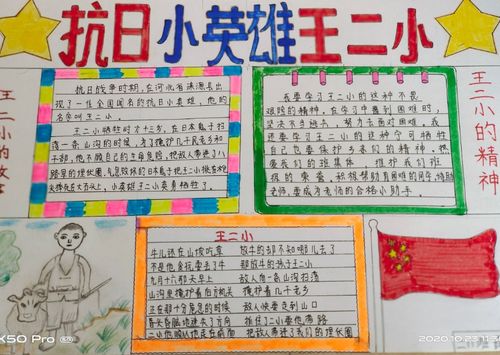 抗日小英雄王二小
王二小的故事
抗日战争时期,在河北省涞源县出
现了一位全国闻名的抗日小英雄,他的
名字叫王二小。
王二小牺牲时才十三岁,在日本鬼子扫
荡一条山沟的时候,为了掩护几千老乡和
干部,他不顾自己的生命危险,把敌人带进了八
路军的埋伏圈,气急败坏的日本鬼子把王二小挑在枪尖
摔死在大石头上,小英雄王二小英勇牺牲了。
我要学习王二小的这种不畏
艰险的精神,在学习中遇到困难时,
坚决不当逃兵,努力去面对困难,我
还要学习王二小的这种宁可牺牲
自己也要保护乡亲们的精神,热
爱我们的班集体,维护我们班
级的荣誉,积极帮助有困难的同学,协助
老师,要成为老师的合格小助手。
王二小的精神
王二小
牛儿还在山坡吃草 放牛的却不知哪儿去了
不是他贪玩耍丢了牛 那放牛的孩子王二小
九月十六那天早上 敌人向一条山沟扫荡
山沟里掩护着后方机关 掩护着几千老乡
正在那十分危急的时候 敌人快要走到山口
昏头昏脑地迷失了方向 抓住了二小要他带路
二小他顺从地走在前面 把敌人带进了我们的埋伏圈
K50 Pro
2020.10.23